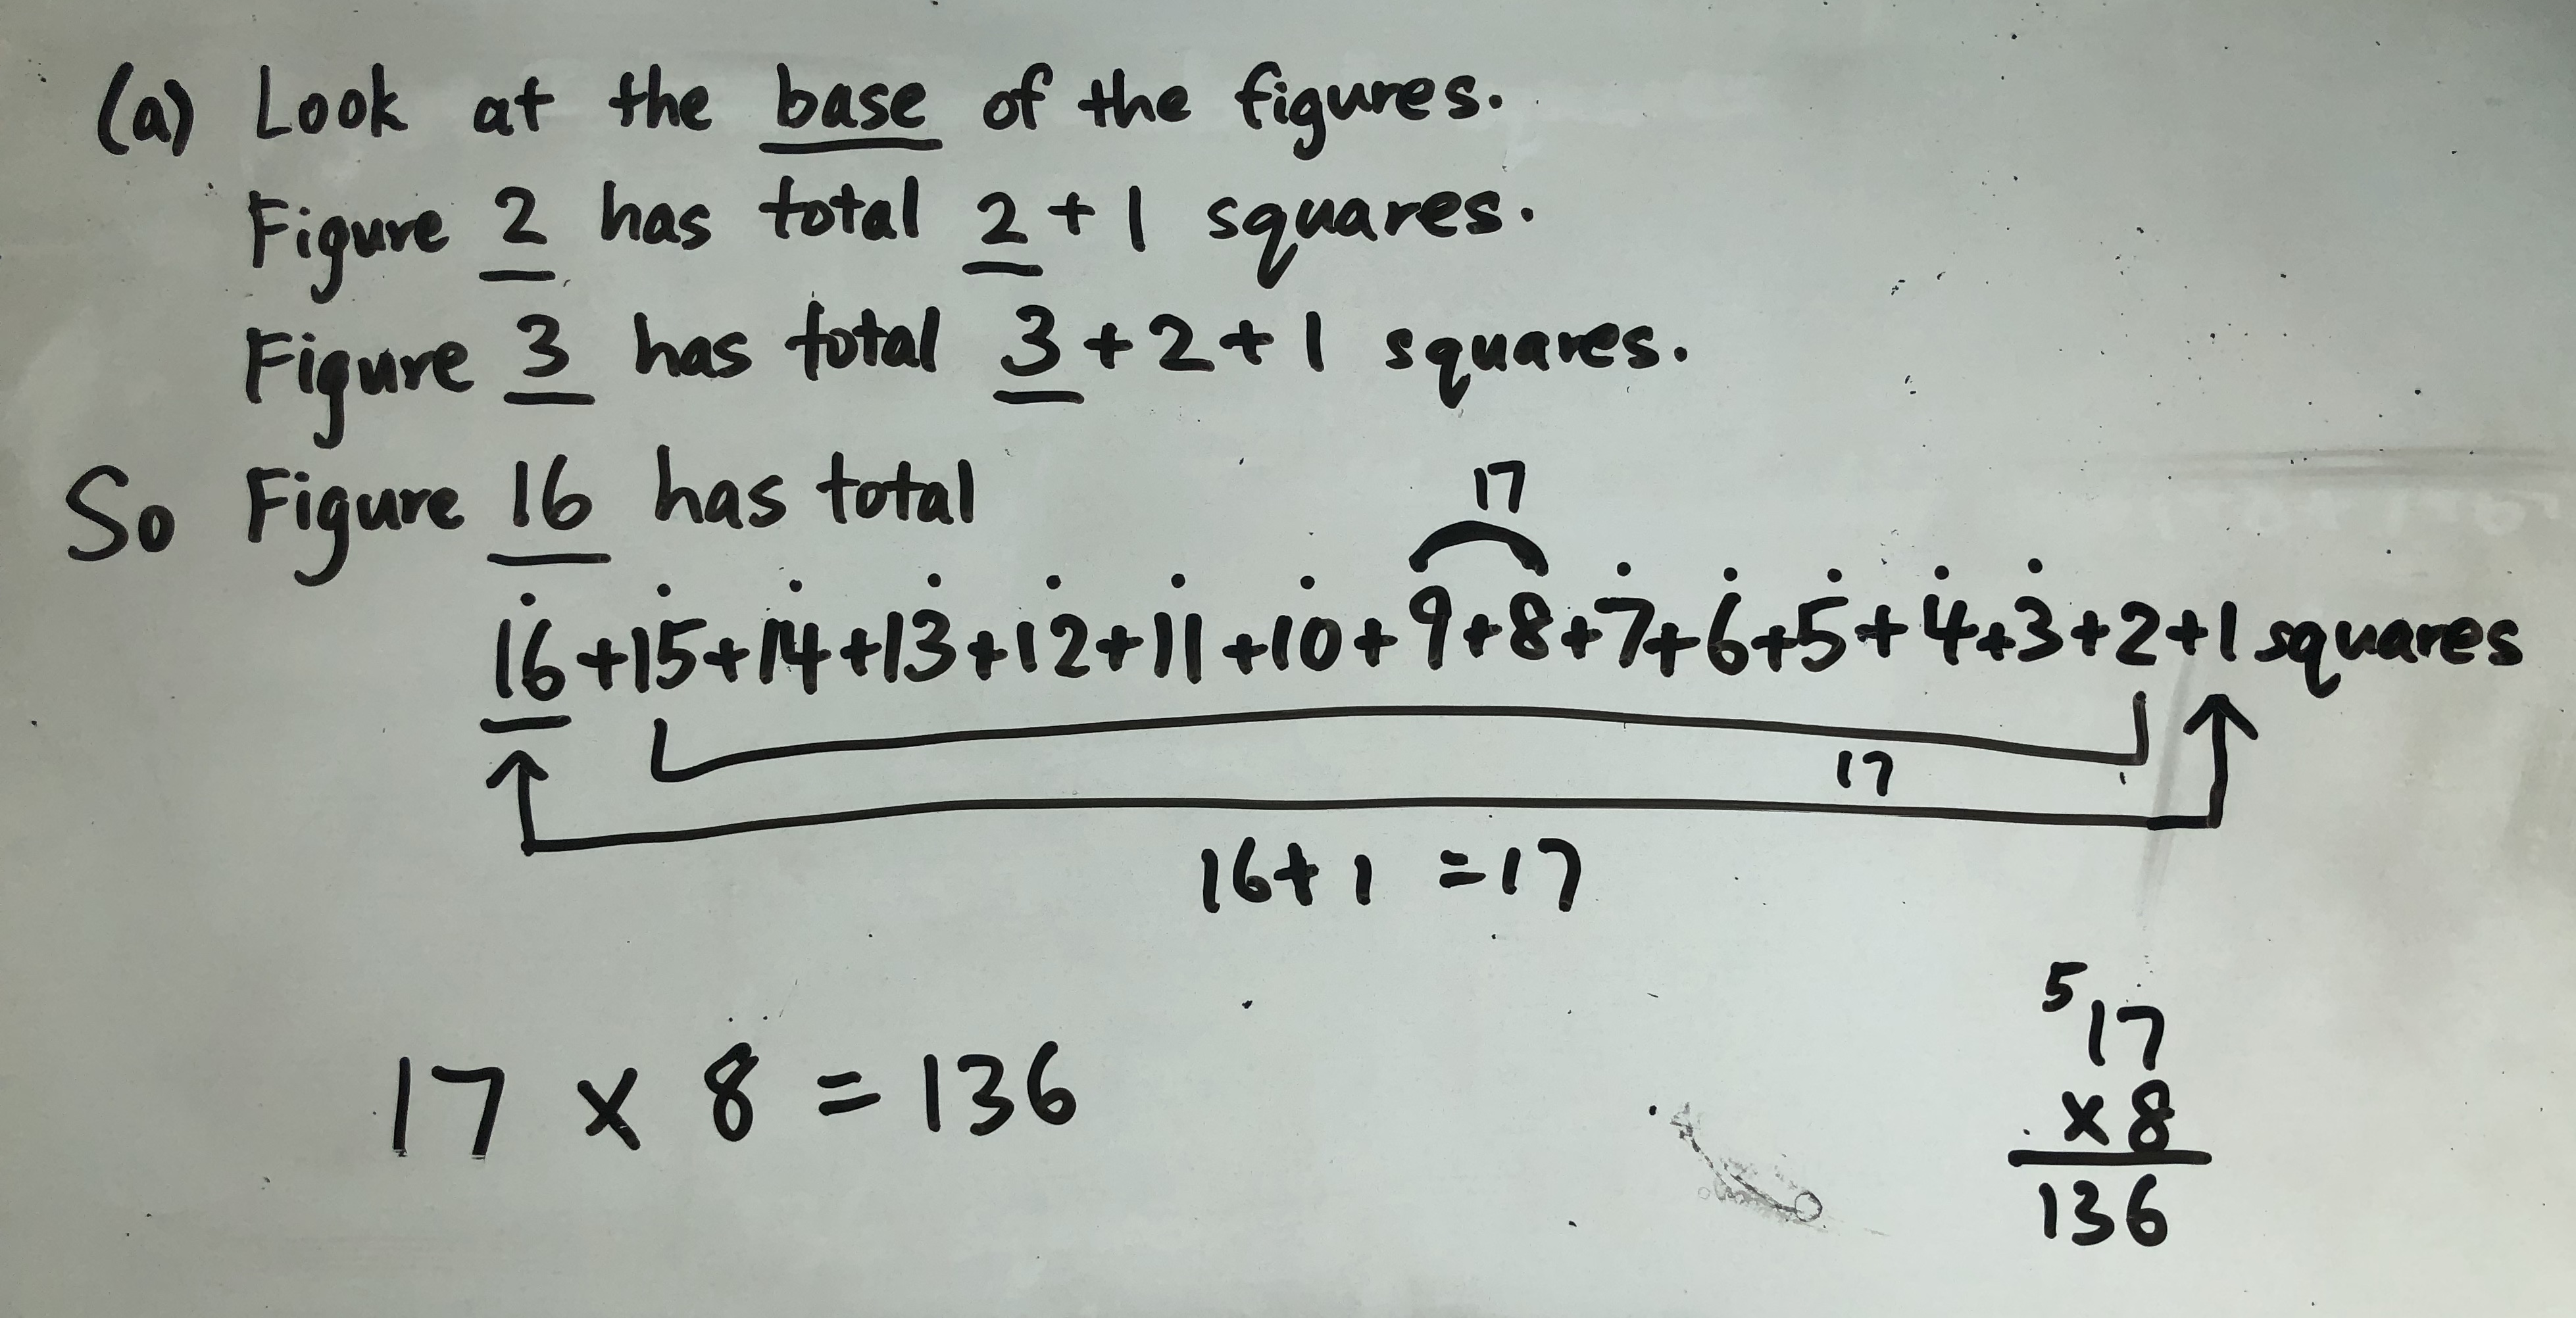 (a) Look at the base of the figures.
Figure 2 has total 2 + 1 squares.
Figure 3 has total 3 + 2 + 1 squares.
So Figure 16 has total
17
16 + 15 + 14 + 13 + 12 + 11 + 10 + 9 + 8 + 7 + 6 + 5 + 4 + 3 + 2 + 1 squares
17
16 + 1 = 17
5
17
17 x 8 = 136
x 8
136